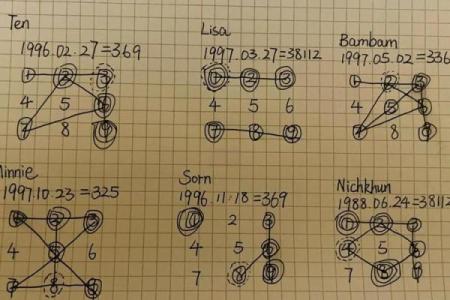 Ten
1996.02.27=369
1 2 3
4 5 6
7 8 9
Lisa
1997.03.27=38112
1 2 3
4 5 6
7 8 9
Bambam
1997.05.02=336
1 2 3
4 5 6
7 8 9
Minnie
1997.10.23=325
1 2 3
4 5 6
7 8 9
Sorn
1996.11.18=369
1 2 3
4 5 6
7 8 9
Nichkhun
1988.06.24=38112
1 2 3
4 5 6
7 8 9